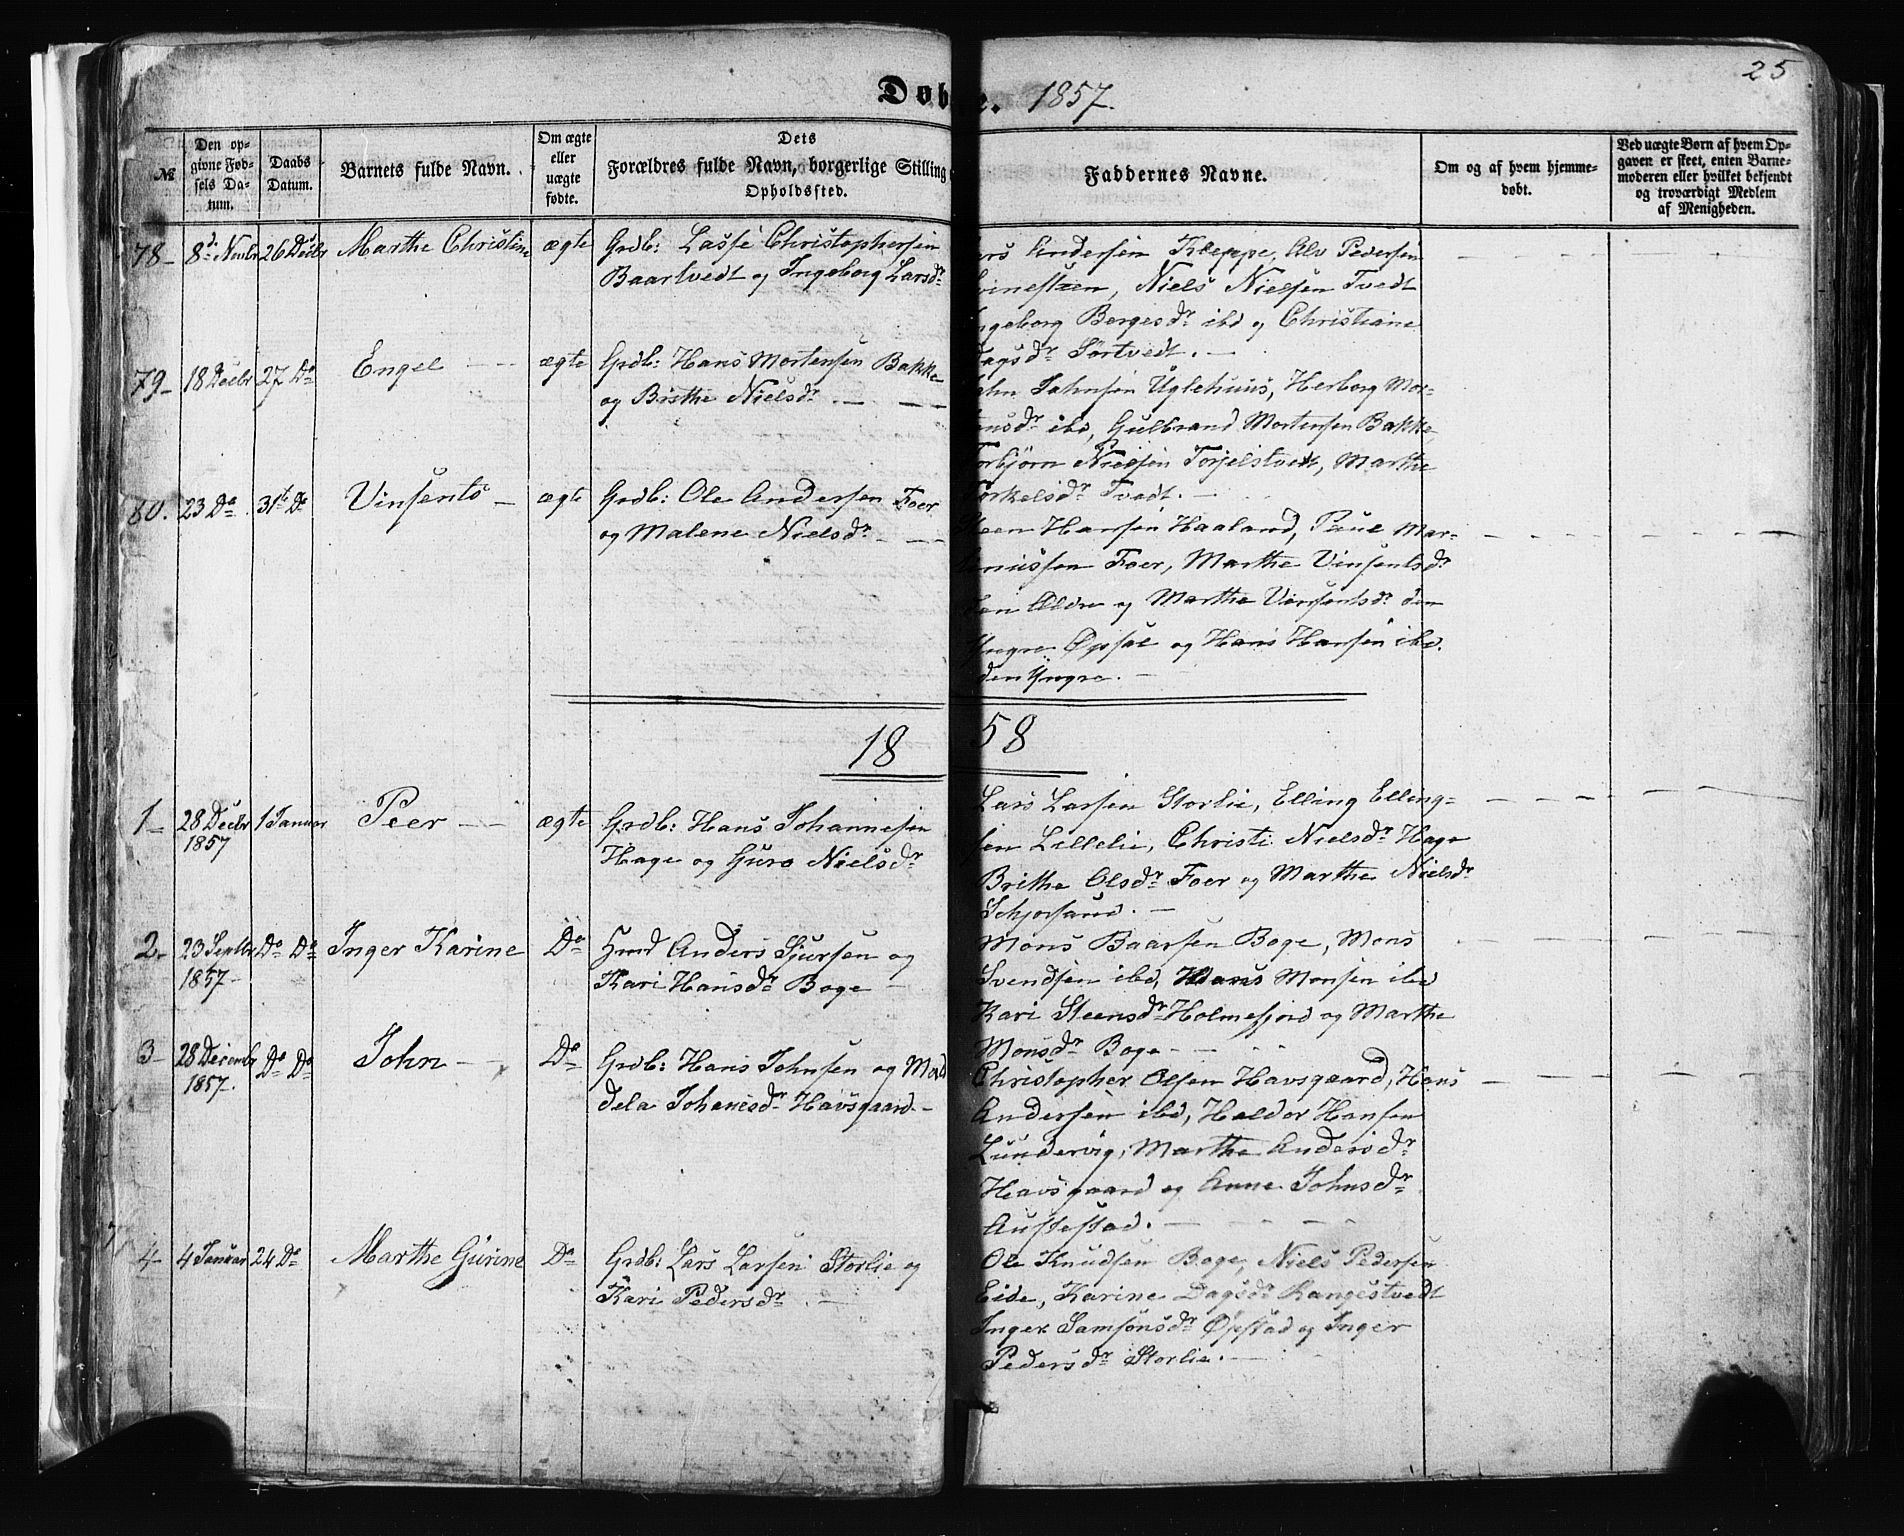 25
Døb e. 1857.
№
Den op-
givne Fød-
sels Da-
tum.
Daabs
Datum.
Barnets fulde Navn.
Om ægte
eller
uægte
fødte.
Dets
Forældres fulde Navn, borgerlige Stilling
Opholdssted.
Faddernes Navne.
Om og af hvem hjemme-
døbt.
Ved uægte Børn af hvem Op-
gaven er skeet, enten Barne-
moderen eller hvilket bekjendt
og troværdigt Medlem
af Menigheden.
78- 8de Novbr 26 Decbr Marthe Christine ægte Grdb: Lasse Christophersen
Baartvedt og Ingeborg Larsdr
Andersen Kleppe, Alv Pedersen
Niels Nielsen Tvedt
ngeborg Børgesdr ibd og Christiane
agsdr Sørtvedt. -
79- 18 Decbr 27 Do Engel - ægte Grdb: Hans Mortensen Bakke
og Brithe Nielsdr. - -
ahn Johnsen Uglehuus, Herborg Mor-
ensdr ibd, Gulbrand Mortensen Bakke
orbjørn Nielsen Torjelstvedt, Marthe
orkelsdr Tvedt. -
80. 23 Do 31te Do Vinsents - ægte Grdb: Ole Andersen Foer
og Malene Nielsdr - -
Steen Hansen Haaland, Paul Mar-
Foer, Marthe Vinsentsdr
den Ældre og Marthe Vinsentsdr den
Yngre Øpsal og Hans Hansen ibd.
den Yngre. -
18 58
1- 28 Decbr 1 Januar Peer - ægte Grdb: Hans Johannesen
1857
Hage og Guro Nielsdr
Lars Larsen Storlie, Elling Elling-
sen Lillelie, Christi Nielsdr Hage
Brithe Olsdr Foer og Marthe Nielsdr
Schjorsand. -
2- 23 Septbr Do Do Inger Karine Do Hmd Anders Sjursen og
1857-
Kari Hansdr Boge -
Mons Baarsen Boge, Mons
Svendsen ibd, Hans Monsen ibd
Kari Steensdr Holmefjord og Marthe
Monsdr Boge -
3- 28 Decembr Do Do John - Do Grdb: Hans Johnsen og Mad
1857.
dela Johanesdr Havsgaard. -
Christopher Olsen Havsgaard, Hans
Andersen ibd, Haldor Hansen
Lundervig, Marthe Andersdr
Havsgaard og Anne Johnsdr
Austestad. -
4- 4 Januar 24 Do Marthe Gurine Do Grdb: Lars Larsen Storlie og
Kari Pedersdr. -
Ole Knudsen Boge, Niels Pedersen
Eide, Karine Dagsdr Rangestvedt
Inger Samsonsdr Øpstad og Inger
Pedersdr Storlie. -